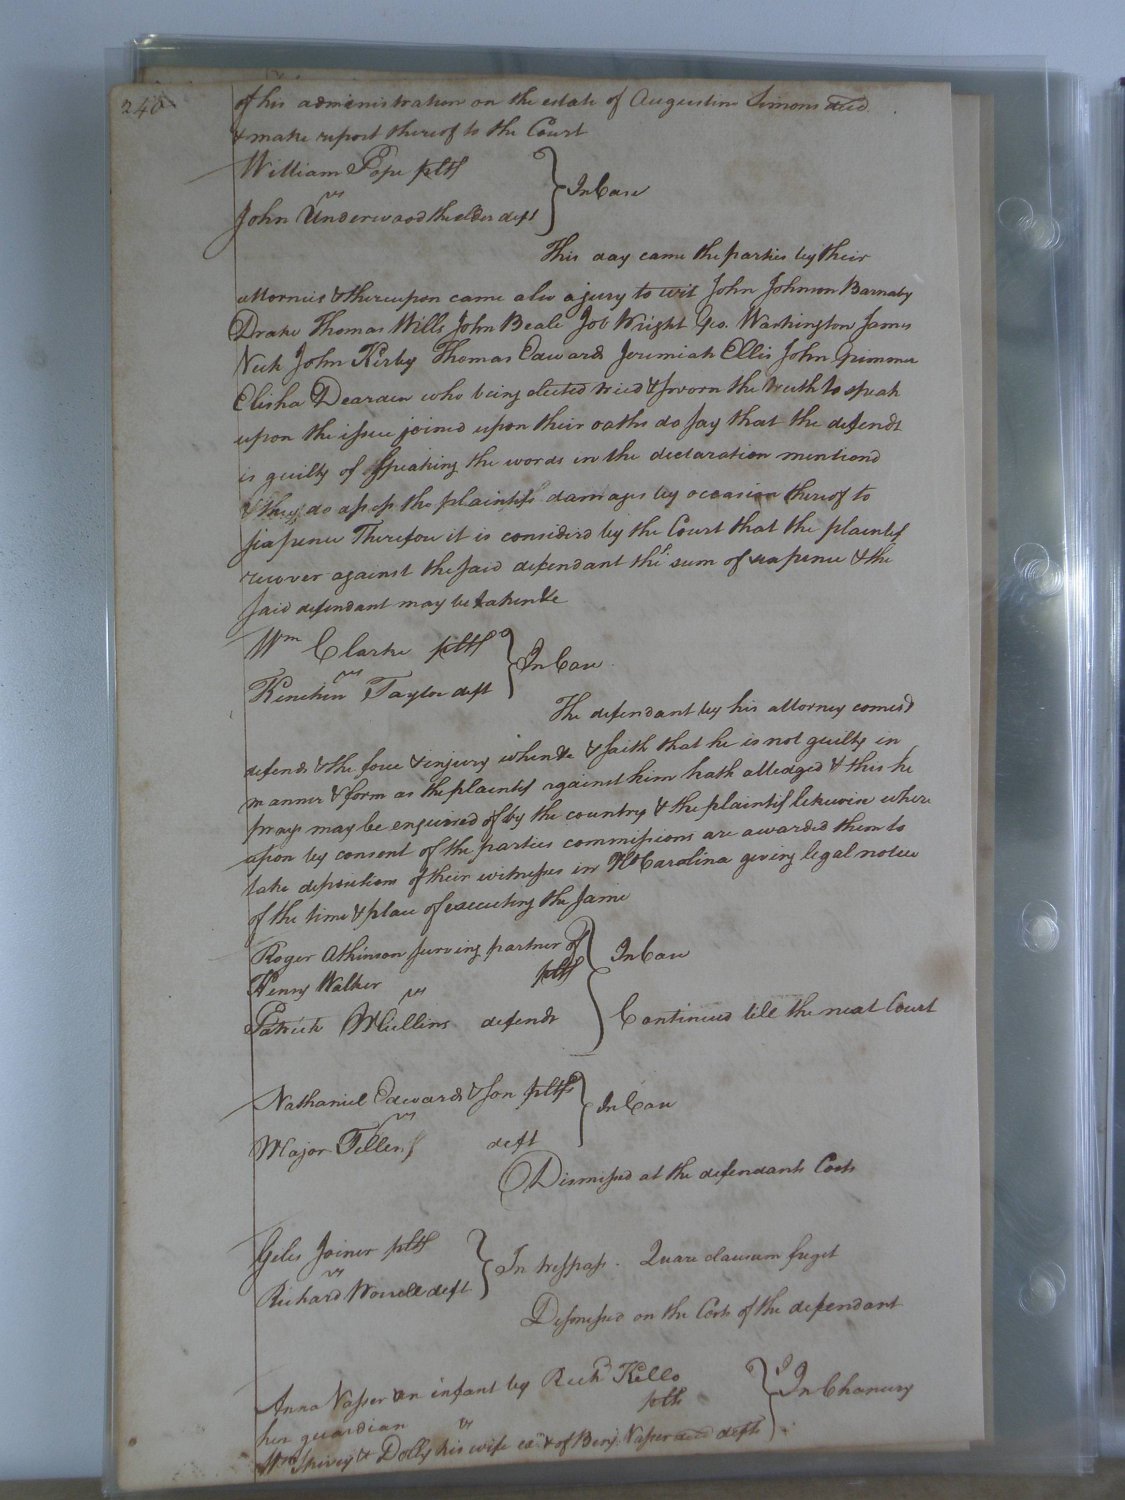 240
of his administration on the estate of Augustine Simons decd
& make report thereof to the Court
William Pope pltf
vs
In Case
John Underwood the elder deft
This day came the parties by their
attornies & thereupon came also a jury to wit John Johnson Barnaby
Drake Thomas Wills John Beale Job Wright Geo. Washington James
Nuth John Kirby Thomas Edwards Jeremiah Ellis John Grimmer
Elisha Dearden who being elected tried & sworn the truth to speak
upon the issue joined upon their oaths do say that the defendt
is guilty of speaking the words in the declaration mentiond
& they do assess the plaintifs damages by occasion thereof to
sixpence Therefore it is considerd by the Court that the plaintif
recover against the said defendant the sum of sixpence & the
said defendant may be taken &c
Wm Clarke pltf
vs
In Case
Kinchin Taylor deft
The defendant by his attorney comes &
defends & the force & injury when &c & saith that he is not guilty in
manner & form as the plaintif against him hath alledged & this he
prays may be enquired of by the country & the plaintif likewise where
upon by consent of the parties commissions are awarded them to
take depositions of their witnesses in No Carolina giving legal notice
of the time & place of executing the same
Roger Atkinson surving partner of
In Case
Henry Walker pltf
vs
Patrick McCullins defendt
Continued till the next Court
Nathaniel Edwards & son pltfs
In Case
vs
Major Tiller deft
Dismissed at the defendants Costs
Giles Joiner pltf
In trespass. Quare clausum freget
vs
Richard Worrell deft
Dismissed on the Costs of the defendant
Anna Vasser an infant by Richd Kello
In Chancery
her guardian pltf
vs
Wm Spivey & Dolly his wife exx & of Benj. Vasser decd defts